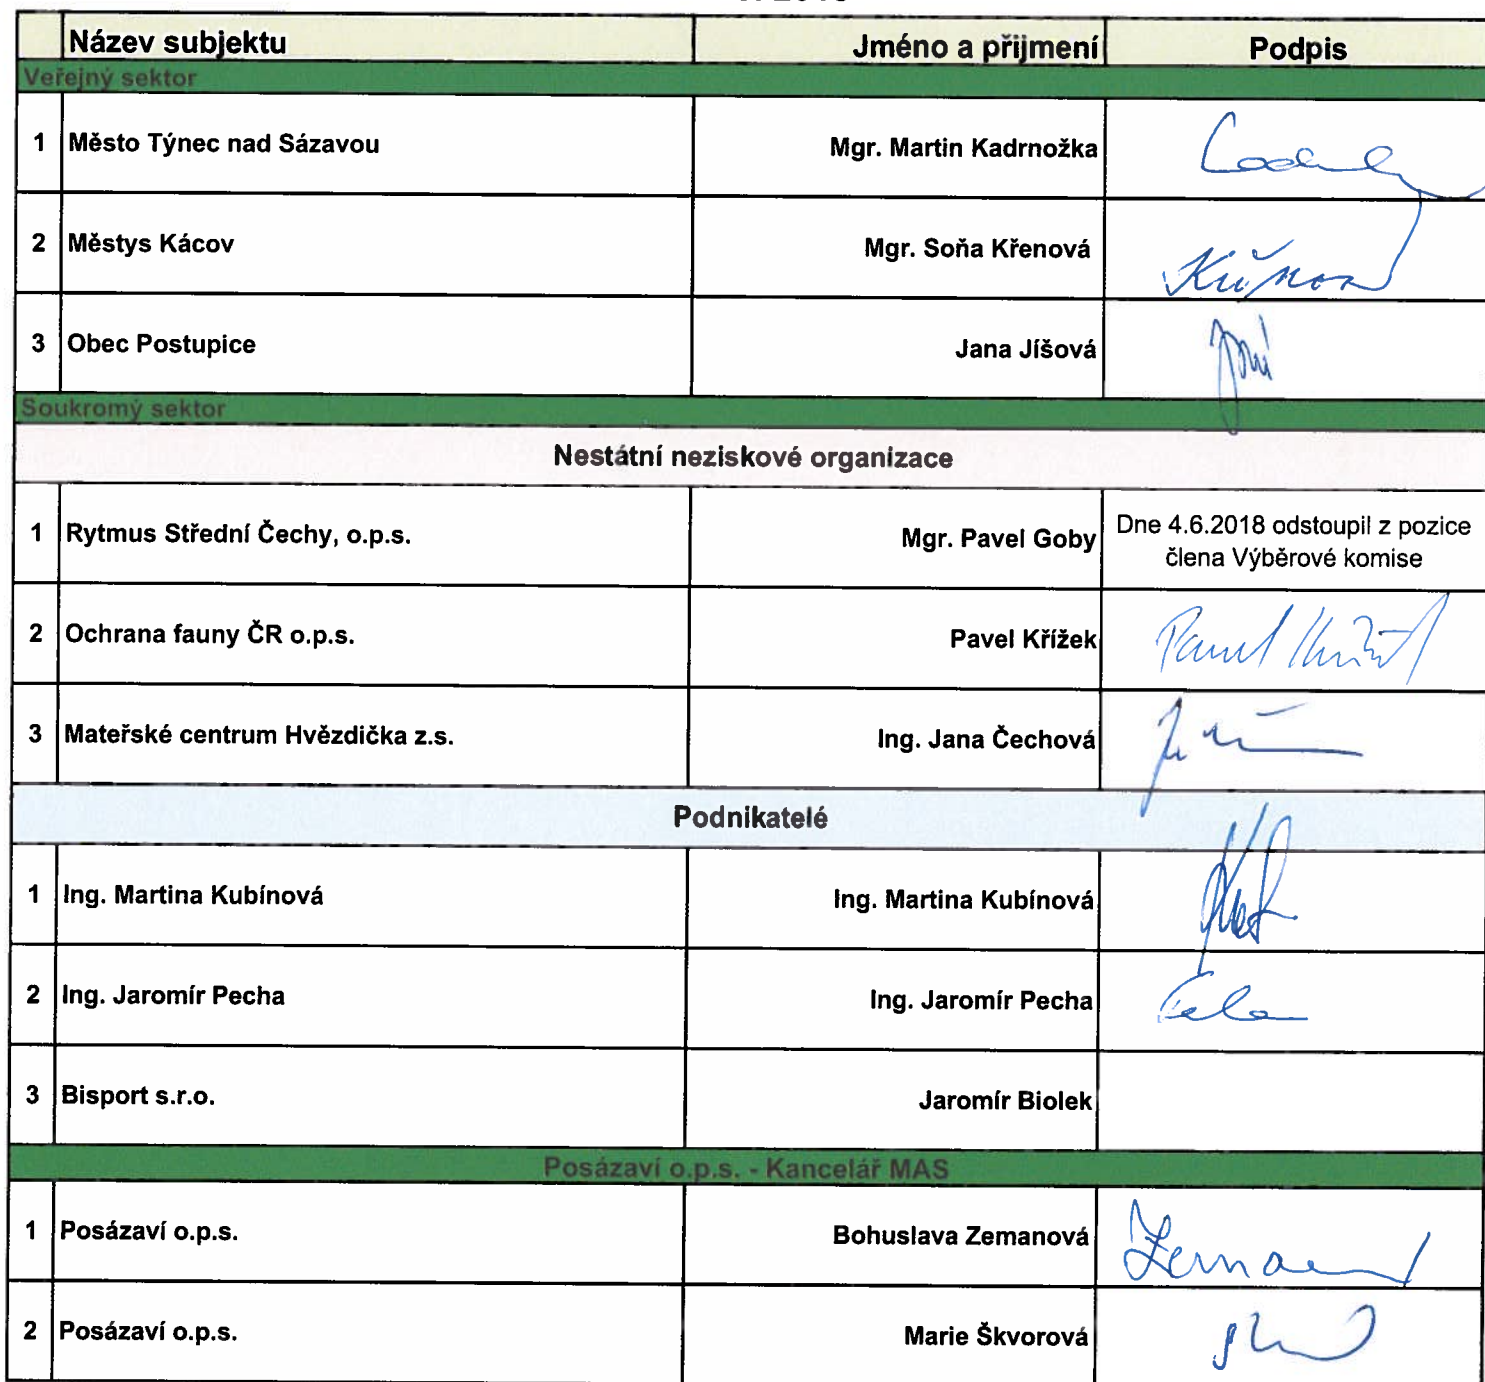 Název subjektu Jméno a přijmení Podpis
Veřejný sektor
1 Město Týnec nad Sázavou Mgr. Martin Kadrnožka
2 Městys Kácov Mgr. Soňa Křenová
3 Obec Postupice Jana Jíšová
Soukromý sektor
Nestátní neziskové organizace
1 Rytmus Střední Čechy, o.p.s. Mgr. Pavel Goby Dne 4.6.2018 odstoupil z pozice
člena Výběrové komise
2 Ochrana fauny ČR o.p.s. Pavel Křížek
3 Mateřské centrum Hvězdička z.s. Ing. Jana Čechová
Podnikatelé
1 Ing. Martina Kubínová Ing. Martina Kubínová
2 Ing. Jaromír Pecha Ing. Jaromír Pecha
3 Bisport s.r.o. Jaromír Biolek
Posázaví o.p.s. - Kancelář MAS
1 Posázaví o.p.s. Bohuslava Zemanová
2 Posázaví o.p.s. Marie Škvorová